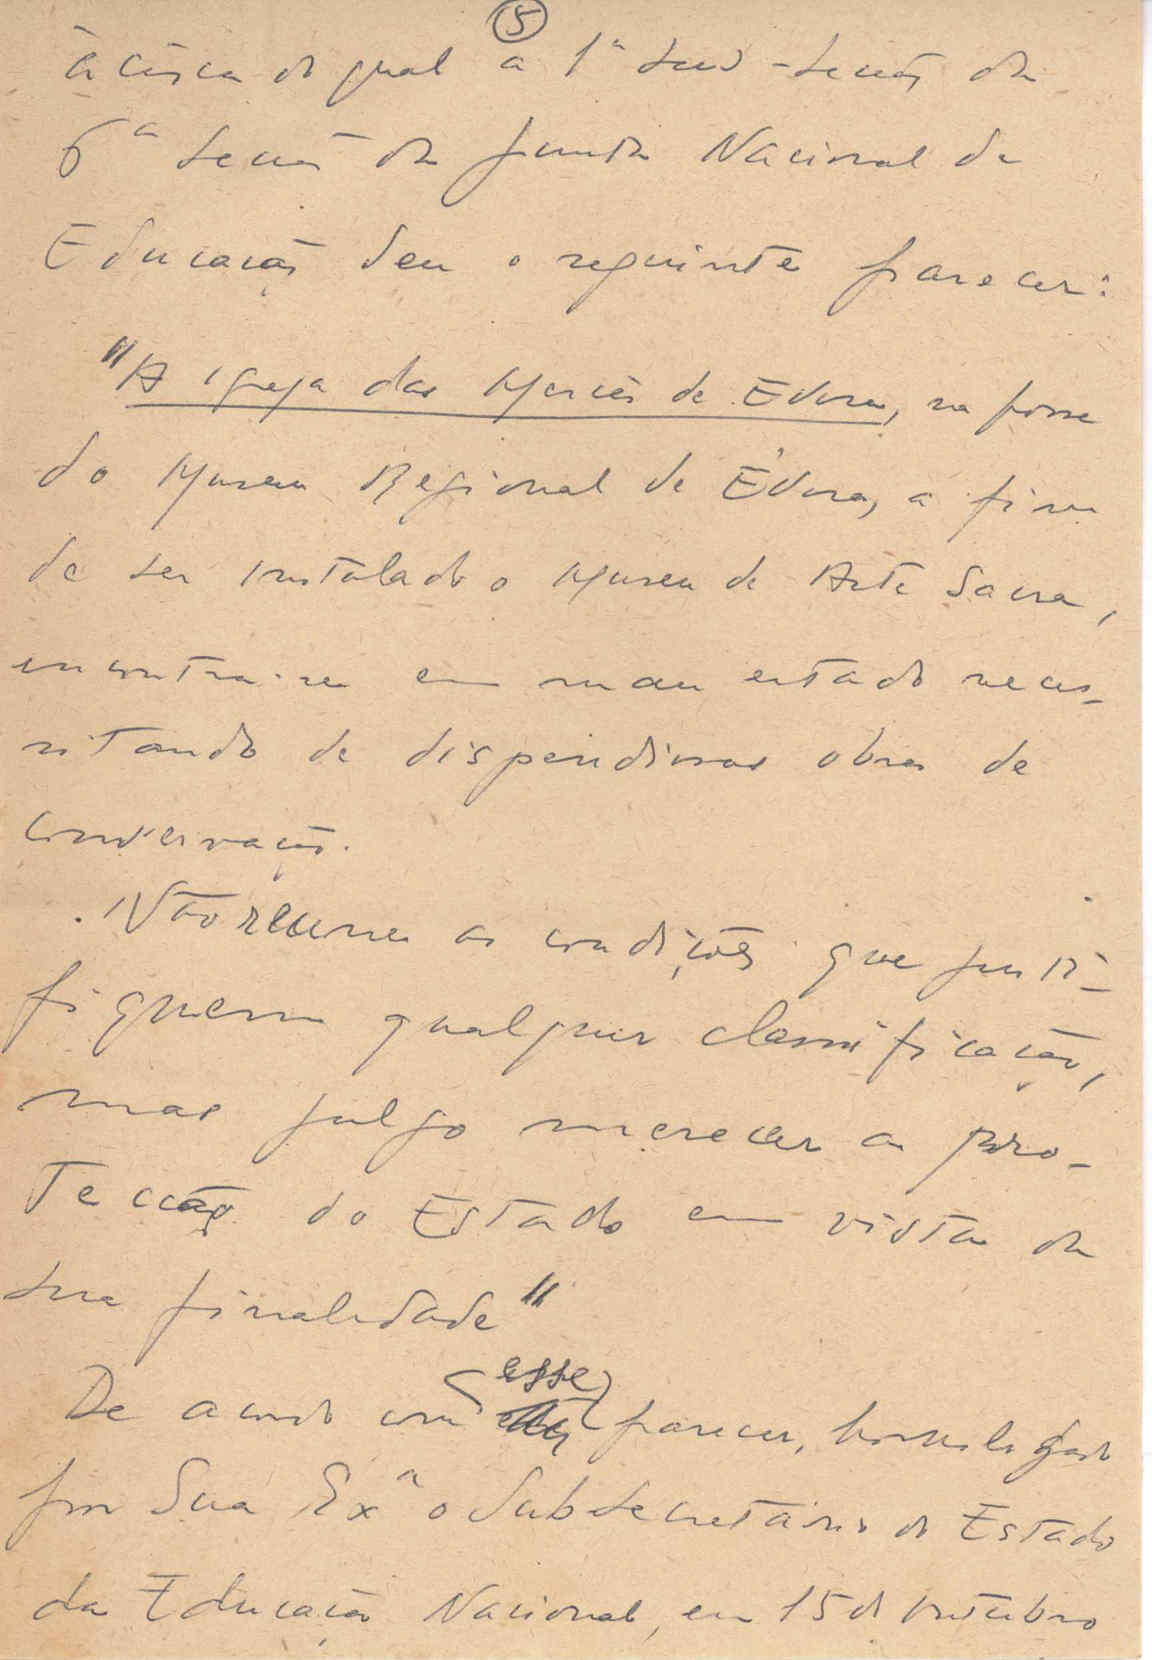 5
àcêrca do qual a 1ª sub-secção da
6ª secção da Junta Nacional da
Educação deu o seguinte parecer:
"A igreja das Mercês de Évora, na posse
do Museu Regional de Évora, a fim
de ser instalado o Museu de Arte Sacra,
encontra-se em mau estado neces-
sitando de dispendiosas obras de
conservação.
Não reune as condições que justi-
fiquem qualquer classificação,
mas julgo merecer a pro-
tecção do Estado em vista da
sua finalidade"
De acordo com esse parecer, homologado
por Sua Exª o Subsecretário de Estado
da Educação Nacional, em 15 de outubro